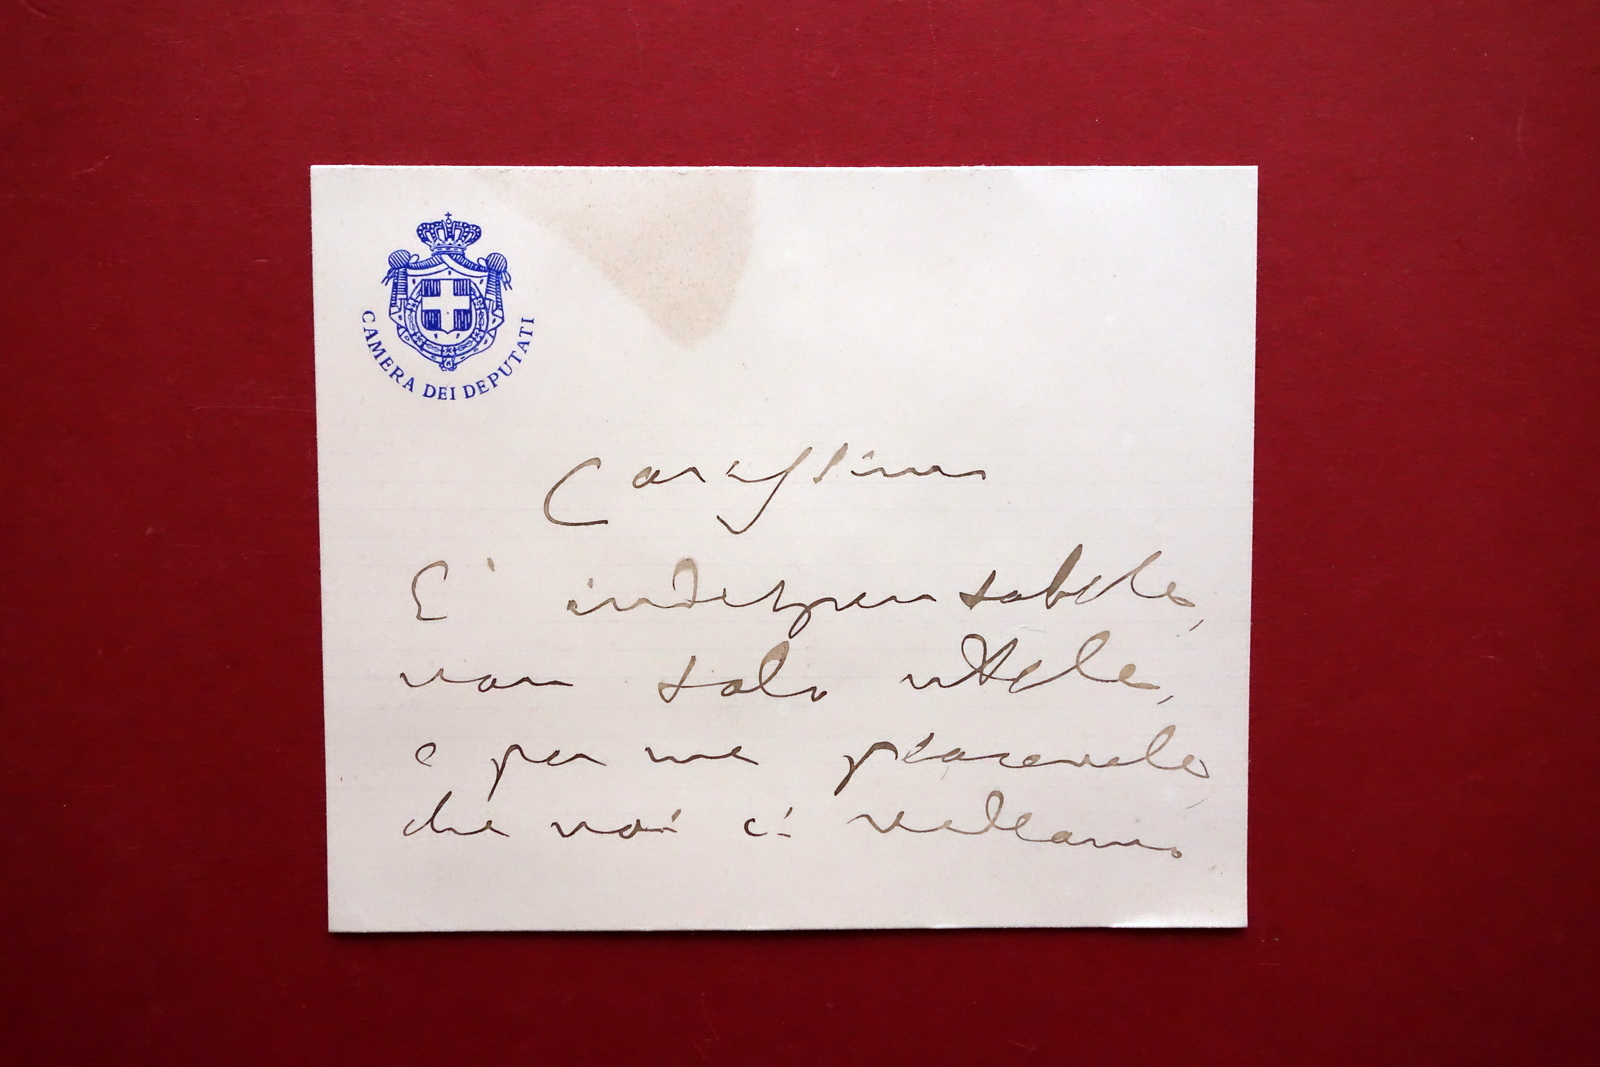 CAMERA DEI DEPUTATI
Carissimo
E' indispensabile,
non solo utile,
e per me piacevole,
che noi ci vediamo.